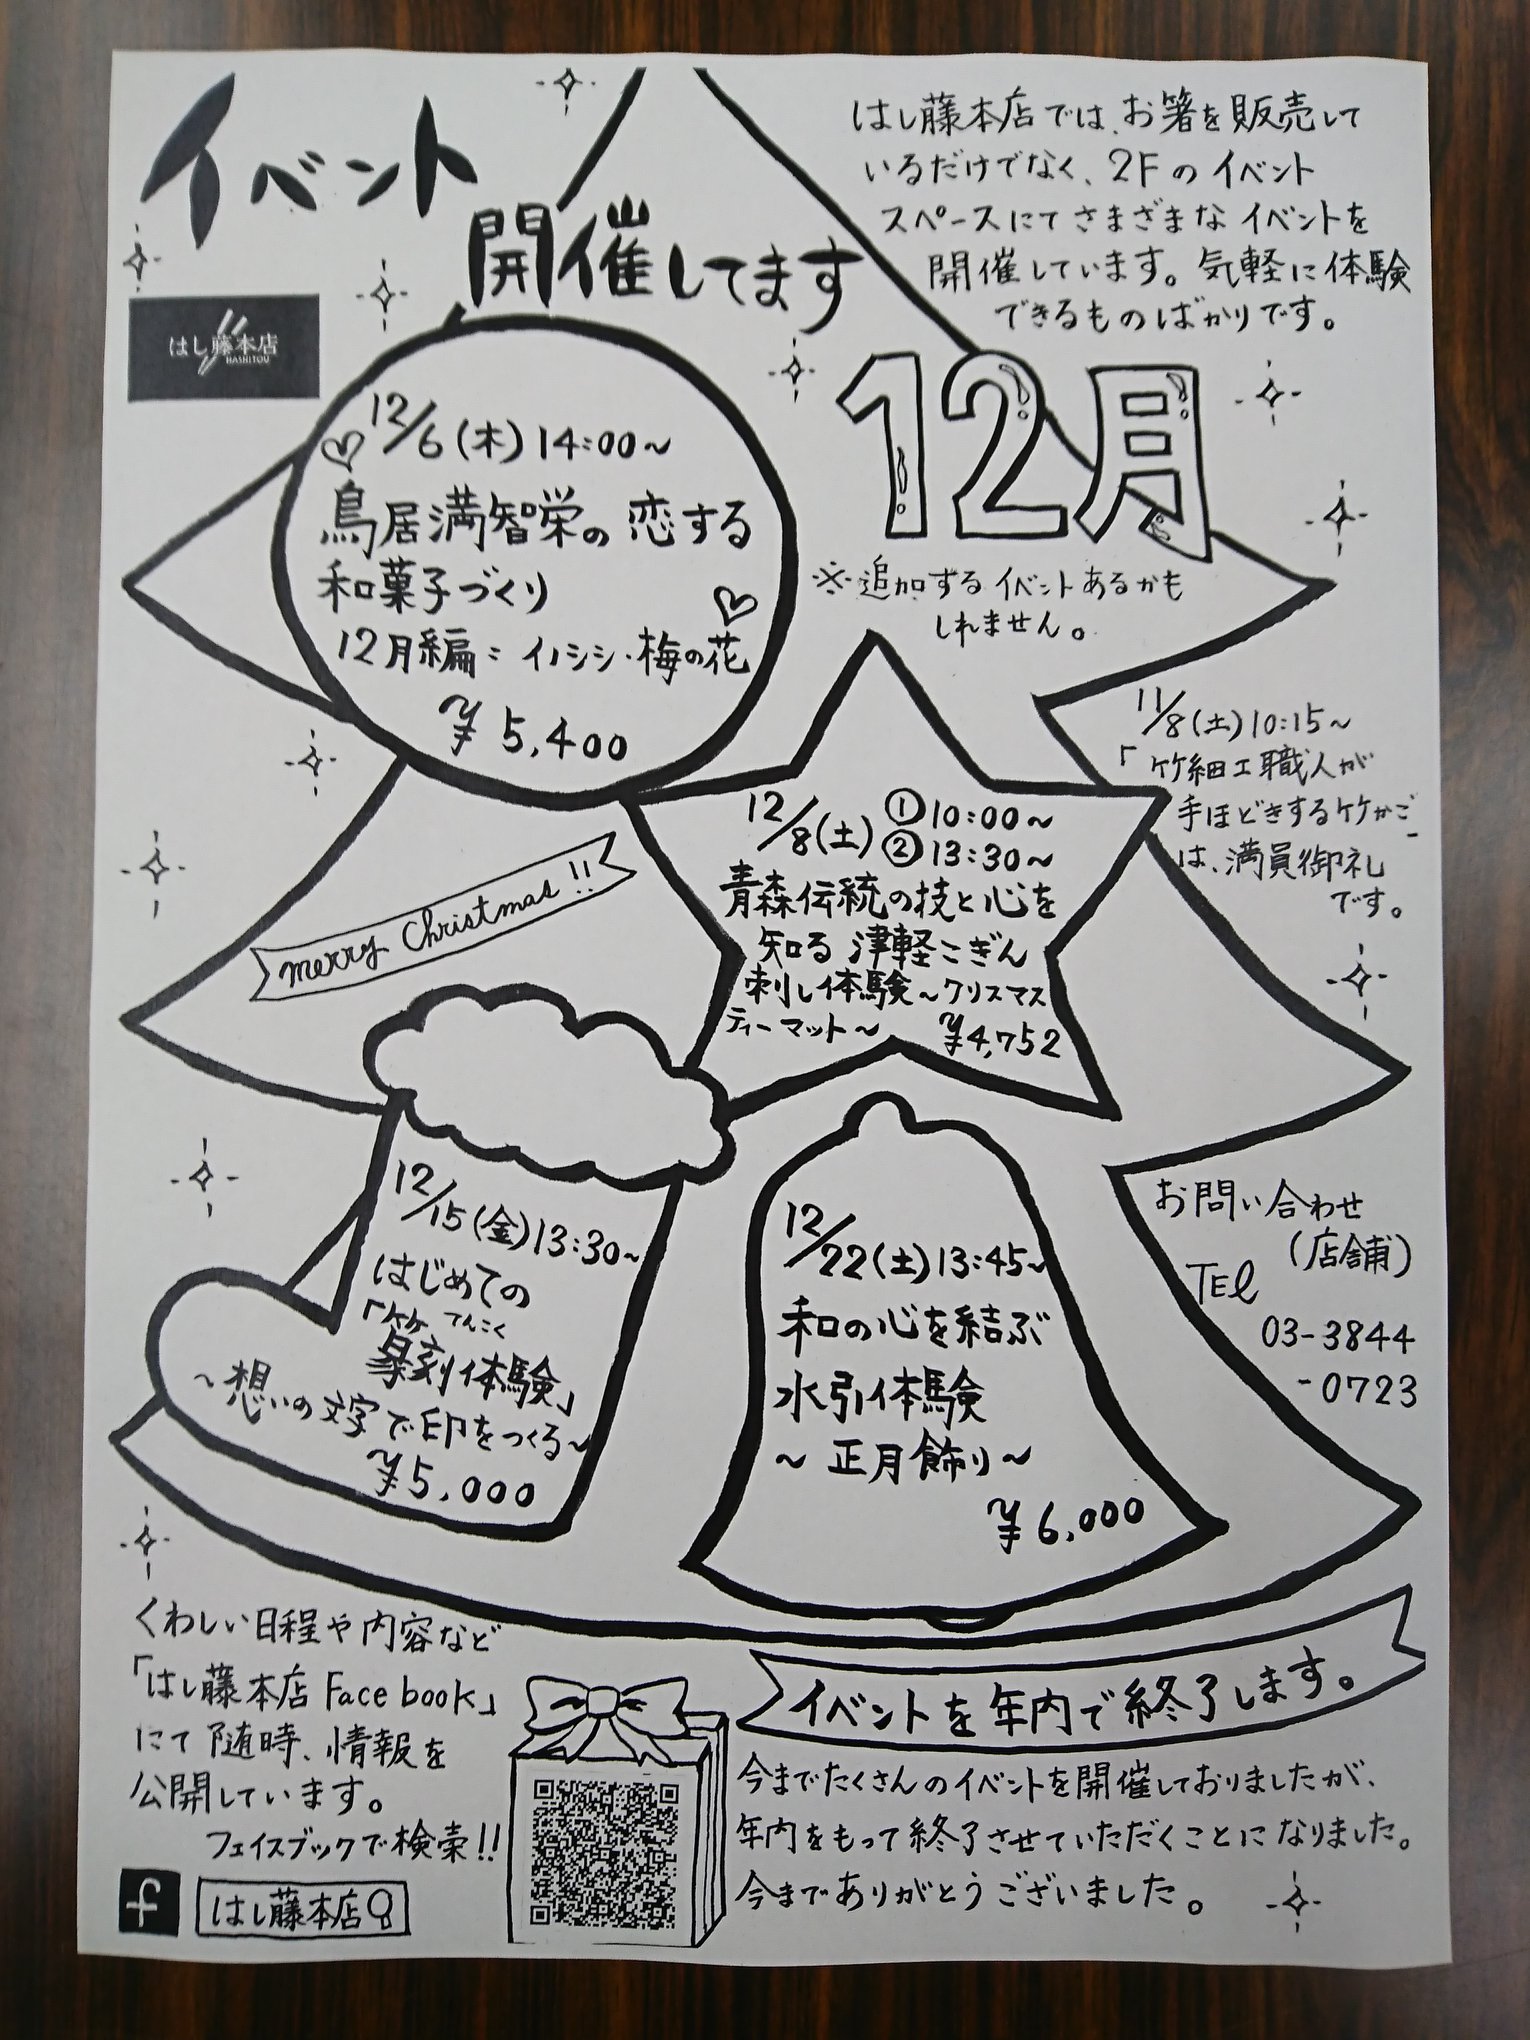 イベント
開催してます
はし藤本店
HASHITOU
はし藤本店では、お箸を販売して
いるだけでなく、2Fのイベント
スペースにてさまざまなイベントを
開催しています。気軽に体験
できるものばかりです。
12月
※追加するイベントあるかも
しれません。
12/6(木)14:00~
鳥居満智栄の恋する
和菓子づくり
12月編:イノシシ・梅の花
¥5,400
11/8(土)10:15~
「竹細工職人が
手ほどきする竹かご
は、満員御礼
です。
12/8(土)①10:00~
②13:30~
青森伝統の技と心を
知る 津軽こぎん
刺し体験~クリスマス
ティーマット~ ¥4,752
merry Christmas!!
12/15(金)13:30~
はじめての
「篆刻体験」
てんこく
~想いの文字で印をつくる~
¥5,000
12/22(土)13:45~
和の心を結ぶ
水引体験
~正月飾り~
¥6,000
お問い合わせ
(店舗)
TEl
03-3844
-0723
くわしい日程や内容など
「はし藤本店Facebook」
にて随時、情報を
公開しています。
フェイスブックで検索!!
f はし藤本店
イベントを年内で終了します。
今までたくさんのイベントを開催しておりましたが、
年内をもって終了させていただくことになりました。
今までありがとうございました。